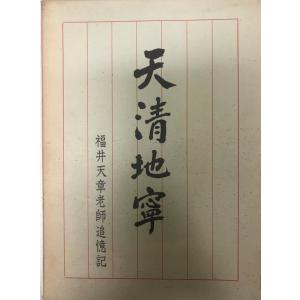 天清地寧
福井天章老師追憶記